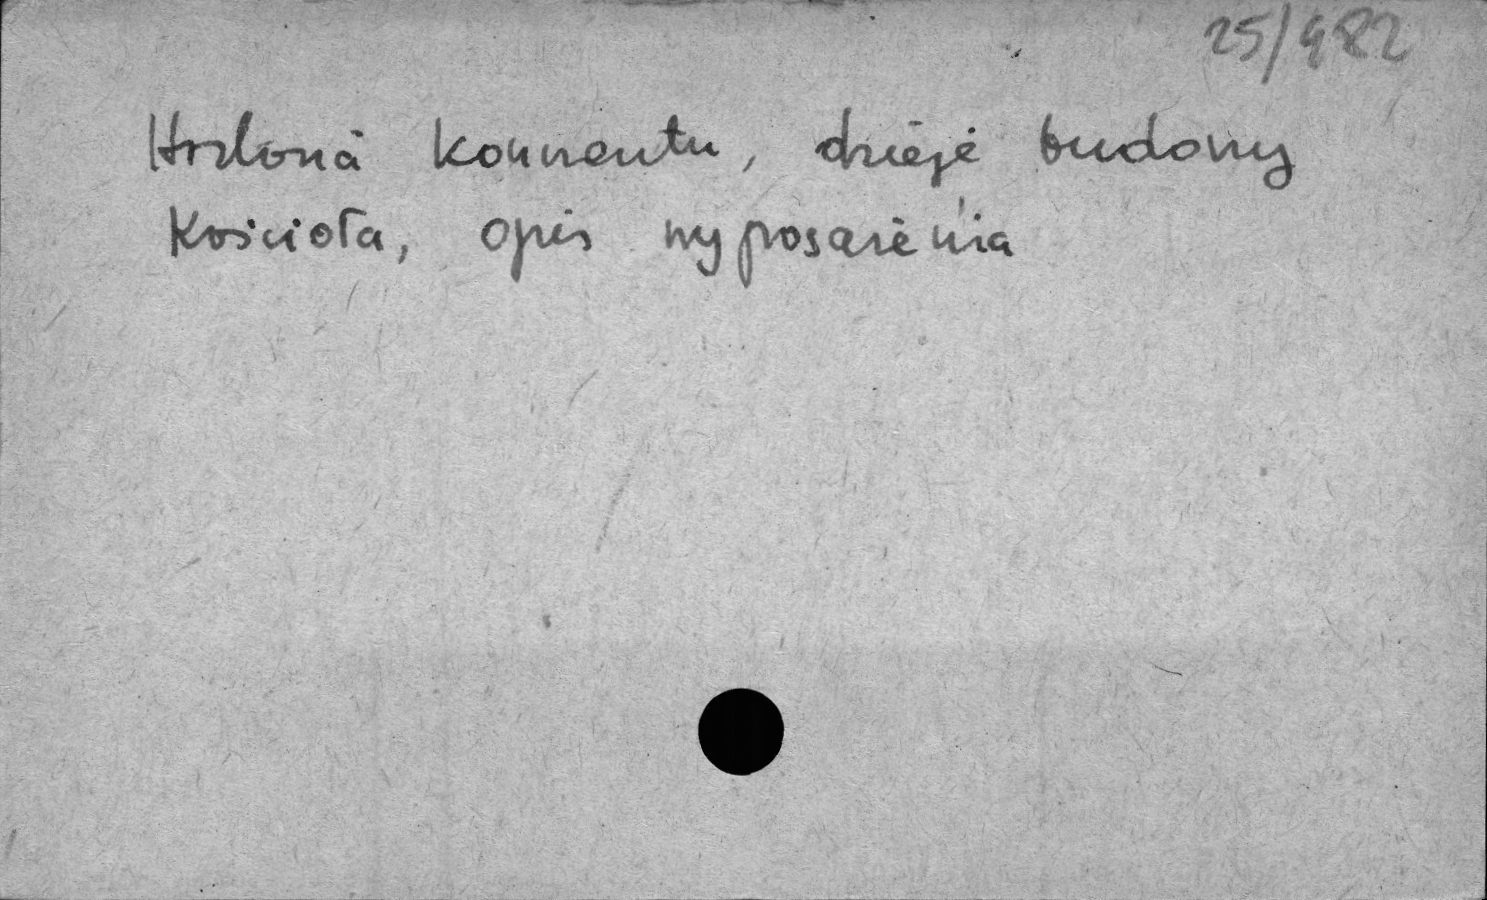 25/482
Historia konwentu, dzieje budowy
Kościoła, opis wyposażenia